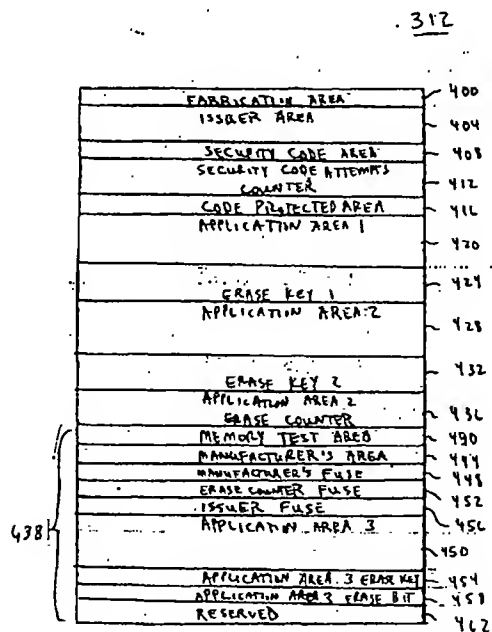 312
FABRICATION AREA 400
ISSUER AREA 404
SECURITY CODE AREA 408
SECURITY CODE ATTEMPTS
COUNTER 412
CODE PROTECTED AREA 416
APPLICATION AREA 1 420
ERASE KEY 1 424
APPLICATION AREA 2 428
ERASE KEY 2 432
APPLICATION AREA 2
ERASE COUNTER 436
MEMORY TEST AREA
MANUFACTURER'S AREA
MANUFACTURER'S FUSE 448
ERASE COUNTER FUSE 452
ISSUER FUSE 456
APPLICATION AREA 3 450
438
APPLICATION AREA 3 ERASE KEY 454
APPLICATION AREA 3 ERASE BIT 458
RESERVED 462